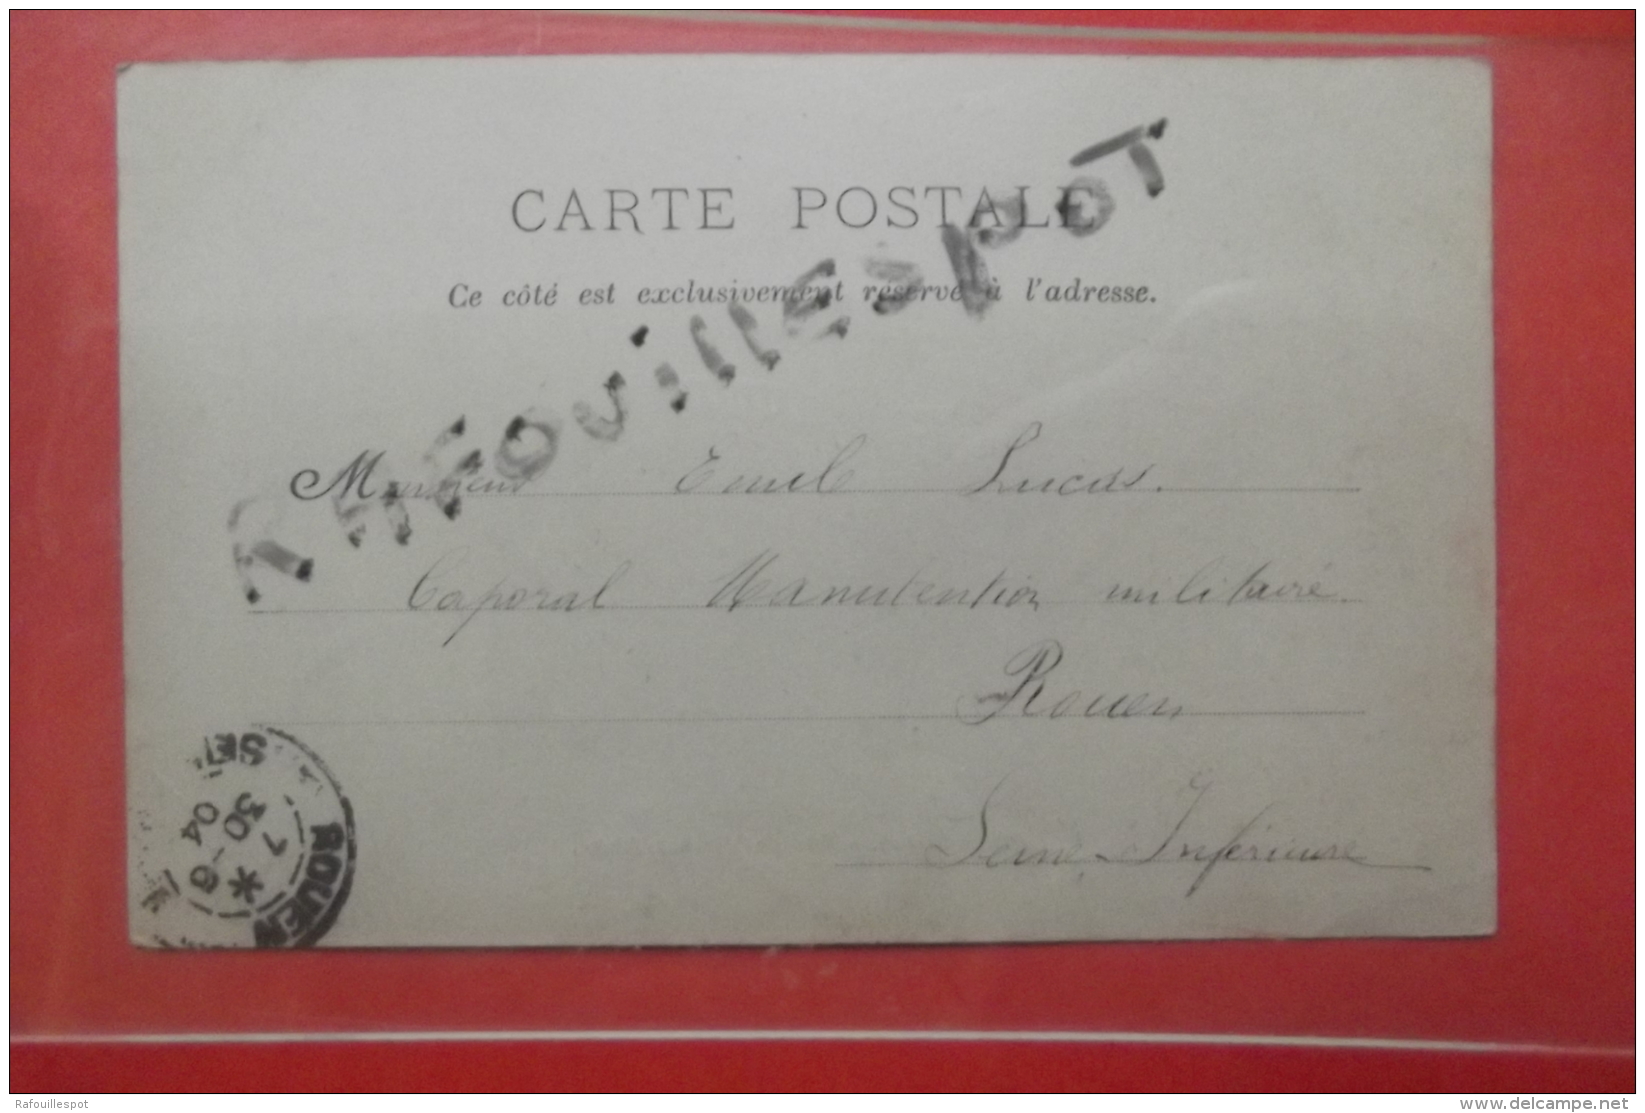 CARTE POSTALE
Ce côté est exclusivement réservé à l'adresse.
RAFouillespoT
Monsieur Emile Lucas.
Caporal Manutention militaire.
Rouen
Seine-Inférieure
ROUEN
7 *
30 -6
04
SE
Rafouillespot
www.delcampe.net